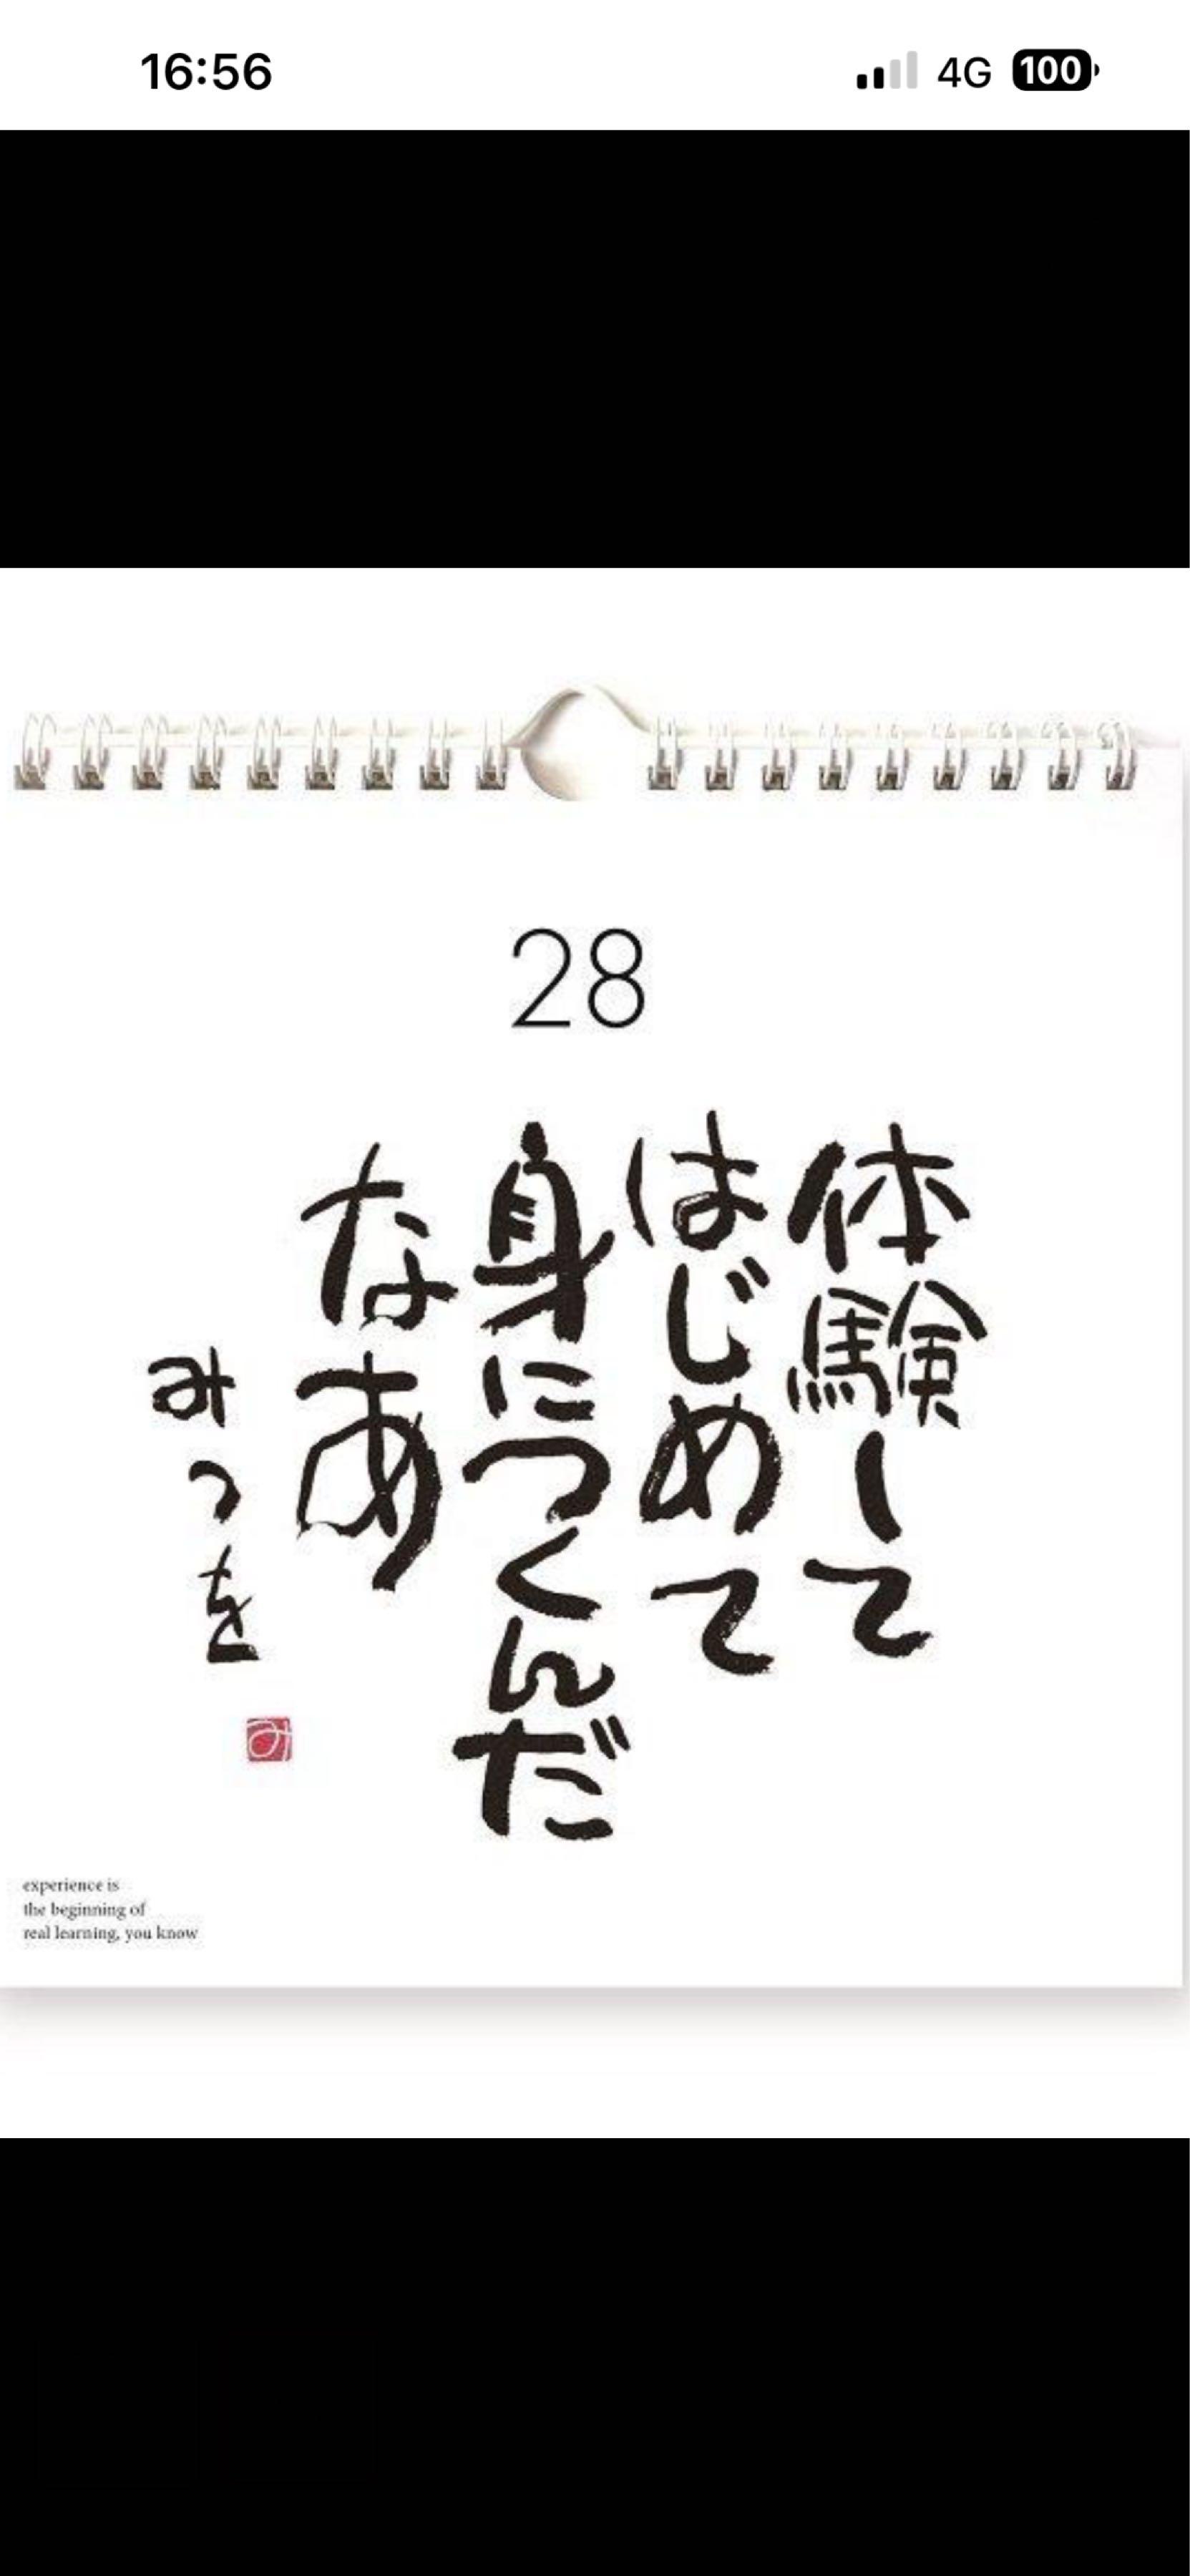 16:56
4G
100
28
体験して
はじめて
身につくんだ
なあ
みつを
み
experience is
the beginning of
real learning, you know